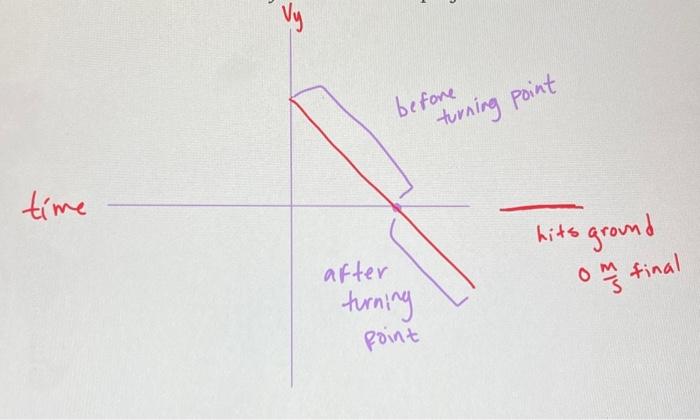 Vy
before
turning point
time
hits ground
0 m/s final
after
turning
point